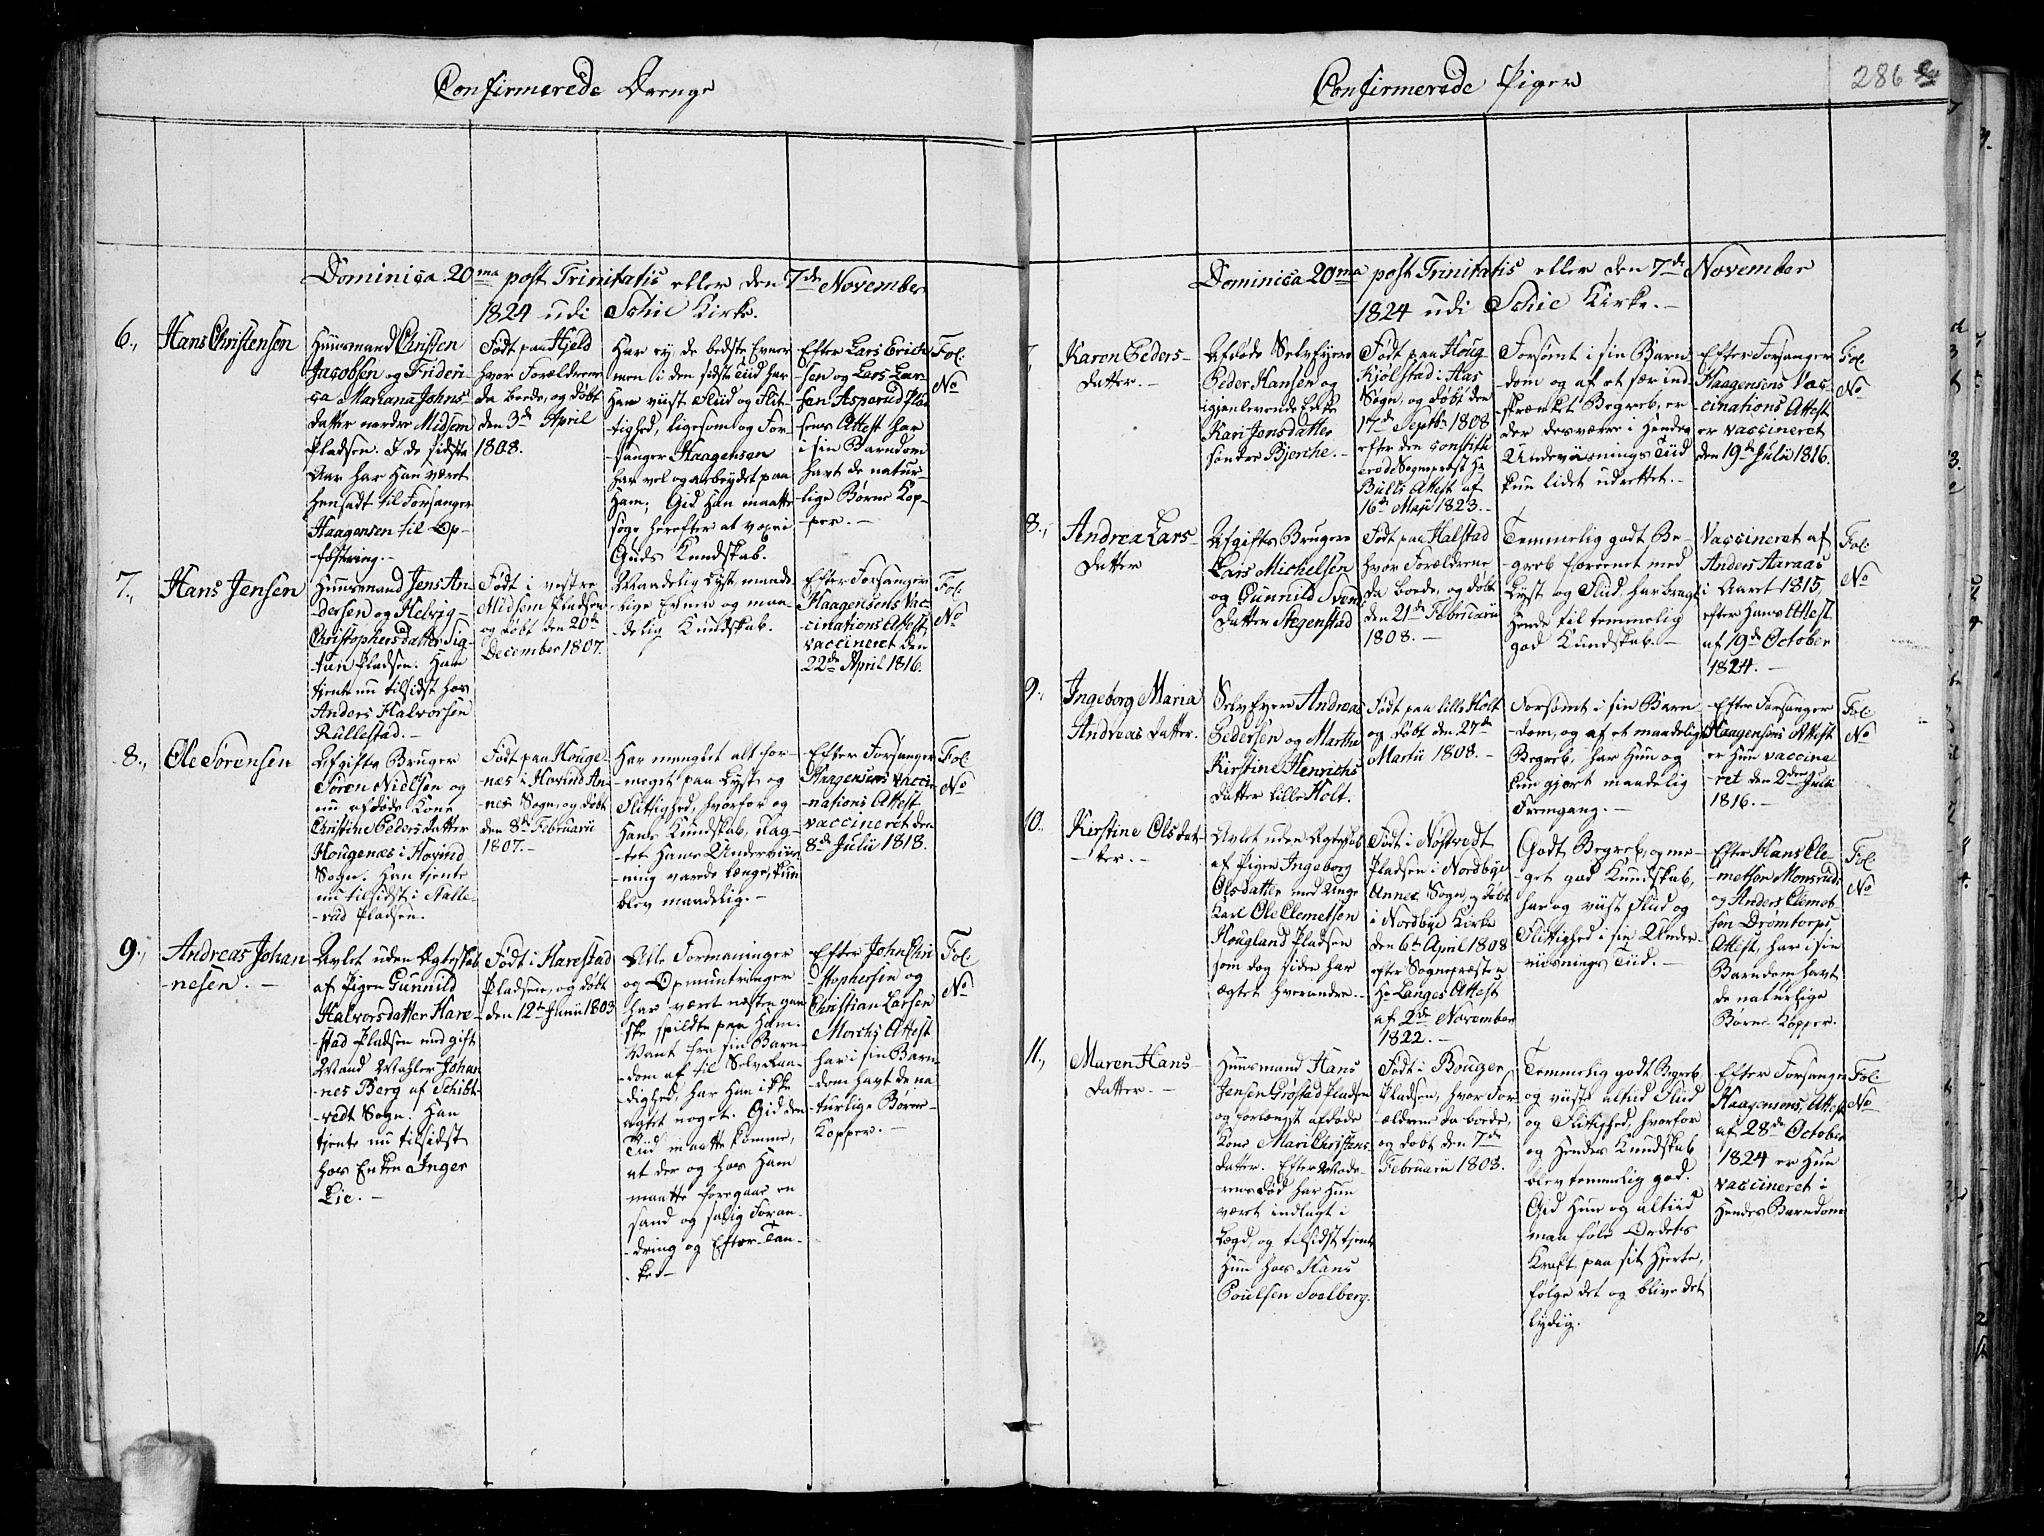 Confirmerede Drenge
Dominica 20ma post Trinitatis eller den 7de November
1824 udi Schie Kirke.
6., Hans Christensen
Huusmand Christen
Jacobsen og Frideri-
ca Mariana Johns-
datter nordre Midsem
Pladsen. I de sidste
Aar har Han været
hensadt til Forsanger
Haagensen til Op-
fostring.
Født paa Hjeld
hvor Forældrene
da boede, og døbt
den 3de April
1808.
Har ej de bedste Evner
men i den sidste Tiid har
Han viist Fliid og Flit-
tighed, ligesom og For-
sanger Haagensen
har vel og arbeydet paa
Ham; Gid Han maatte
søge herefter at voxe i
Guds Kundskab.
Efter Lars Erich
sen og Lars Lar-
sen Asperud Plad
sens Attest har
i sin Barndom
havt de natur-
lige Børne Kop-
per. -
Fol.
No
7., Hans Jensen
Huusmand Jens An-
dersen og Helvig
Christophersdatter Sig-
tun Pladsen. Han
tjente nu tilsidst hos
Anders Halvorsen
Rullestad. -
Født i vestre
Midsem Pladsen
og døbt den 20de
December 1807.
Maadelig Lyst, maade-
lige Evner og maa-
delig Kundskab.
Efter Forsanger
Haagensens Vac-
cinations Attest
vaccineret den
22de April 1816.
Fol.
No
8., Ole Sørensen
Afgifts Bruger
Søren Nielsen og
nu afdøde Kone
Christine Pedersdatter
Hougenæs i Hovind
Sogn. Han tjente
nu tilsidst i Nalle-
-rud Pladsen.
Født paa Houge-
næs i Hovind An-
nex Sogn, og døbt
den 8de Februarii
1807. -
Har manglet alt for-
meget paa Lyst og
Flittighed, hvorfor og
Hans Kundskab, uag-
-tet Hans Underviis-
ning varede længe, kun
blev maadelig. -
Efter Forsanger
Haagensens Vacci-
nations Attest
vaccineret den
8de Julii 1818.
Fol.
No
9., Andreas Johan
-nesen. -
Avlet uden Ægteskab
af Pigen Gunnild
Halvorsdatter Hare-
stad Pladsen med gift
Mand Mahler Johan-
nes Berg af Schibt-
vedt Sogn. Han
tjente nu tilsidst
hos Enken Inger
Lie. -
Født i Harestad
Pladsen, og døbt
den 12te Junii 1803
Alle Formaninger
og Opmuntringer
har været næsten gan
ske spildte paa Ham.
Vant fra sin Barn-
dom af til Selvraa-
dighed, har Han ikke
agtet noget. Gid den
Tiid maatte komme,
at der og hos Ham
maatte foregaae en
sand og salig Foran-
dring og Efter-Tan-
ke. -
Efter John Chri
stophersen og
Christian Larsen
Morchs Attest
har i sin Barn-
dom havt de na-
turlige Børne-
Kopper. -
Fol.
No
Confirmerede Piger
286
Dominica 20ma post Trinitatis eller den 7de November
1824 udi Schie Kirke. -
7 Karen Peders-
Datter. -
Afdøde Selv Eyere
Peder Hansen og
igjenlevende Enke
Kari Jonsdatter
søndre Bjerche. -
Født paa Houg-
Kjølstad i Aas
Sogn, og døbt den
17de Septbr 1808
efter den constitu
erede Sogneprest Hr
Bulls Attest af
16de Maji 1823. -
Forsømt i sin Barn
-dom og af et sær ind-
-skrænket Begreb, er
der desværre i Hendes
Underviisnings Tiid
kun lidet udrettet. -
Efter Forsanger
Haagensens Vac
-cinations Attest
er vaccineret
den 19de Julii 1816.
Fol.
No
8., Andrea Lars-
Datter
Afgifts Bruger
Lars Michelsen
og Gunnild Svens
Datter Stegenstad
Født paa Halstad
hvor Forældrene
da boede, og døbt
den 21de Februarii
1808. -
Temmelig godt Be-
-greb foreenet med
Lyst og Fliid, har bragt
Hende til temmelig
god Kundskab. -
Vaccineret af
Anders Haraas
i Aaret 1815,
efter Hans Attest
af 19de October
1824. -
Fol.
No
9., Ingeborg Maria
Andreas Datter.
Selv Eyer Andreas
Pedersen og Marthe
Kirstine Henrichs
Datter lille Holt.
Født paa lille Holt
og døbt den 27de
Martii 1808. -
Forsømt i sin Barn
-dom, og af et maadeligt
Begreb, har Hun og
kun gjort maadelig
Fremgang. -
Efter Forsanger
Haagensens Attest
er Hun vaccine
-ret den 2den Julii
1816. -
Fol.
No
10., Kirstine Olsdat-
-ter. -
Avlet uden Ægteskab
af Pigen Ingeborg
Olsdatter med Unge
Karl Ole Clemetsen
Hougland Pladsen
som dog siden har
ægtet hverandre. -
Født i Nøstvedt
Pladsen i Nordbye
Annex Sogn, og døbt
i Nordbye Kirke
den 6te April 1808
efter Sognepræsten
Hr Langes Attest
af 2de November
1822. -
Godt Begreb, og me-
get god Kundskab,
har og viist Fliid og
Flittighed i sin Under-
-viisnings Tiid. -
Efter Hans Cle-
-metsen Monsrud
og Anders Clemet-
sen Drømtorps
Attest, har i sin
Barndom havt
de naturlige
Børne-Kopper.
Fol.
No
11., Maren Hans-
Datter. -
Huusmand Hans
Jensen Grøstad Pladsen
og forlængst afdøde
Kone Mari Christens-
datter. Efter Mode-
rens Død har Hun
været indlagt i
Lægd, og tilsidst tjent
Hun hos Hans
Poulsen Solberg.
Født i Bouger
Pladsen, hvor For-
ældrene da boede,
og døbt den 7de
Februarii 1808.
Temmelig godt Begreb
og viiste altid Fliid
og Flittighed, hvorfor
og Hendes Kundskab
blev temmelig god.
Gid Hun og altiid
maa føle Ordets
Kraft paa sit Hjerte,
følge det og blive det
lydig.
Efter Forsanger
Haagensens Attest
af 28de October
1824 er Hun
vaccineret i
Hendes Barndom.
Fol.
No